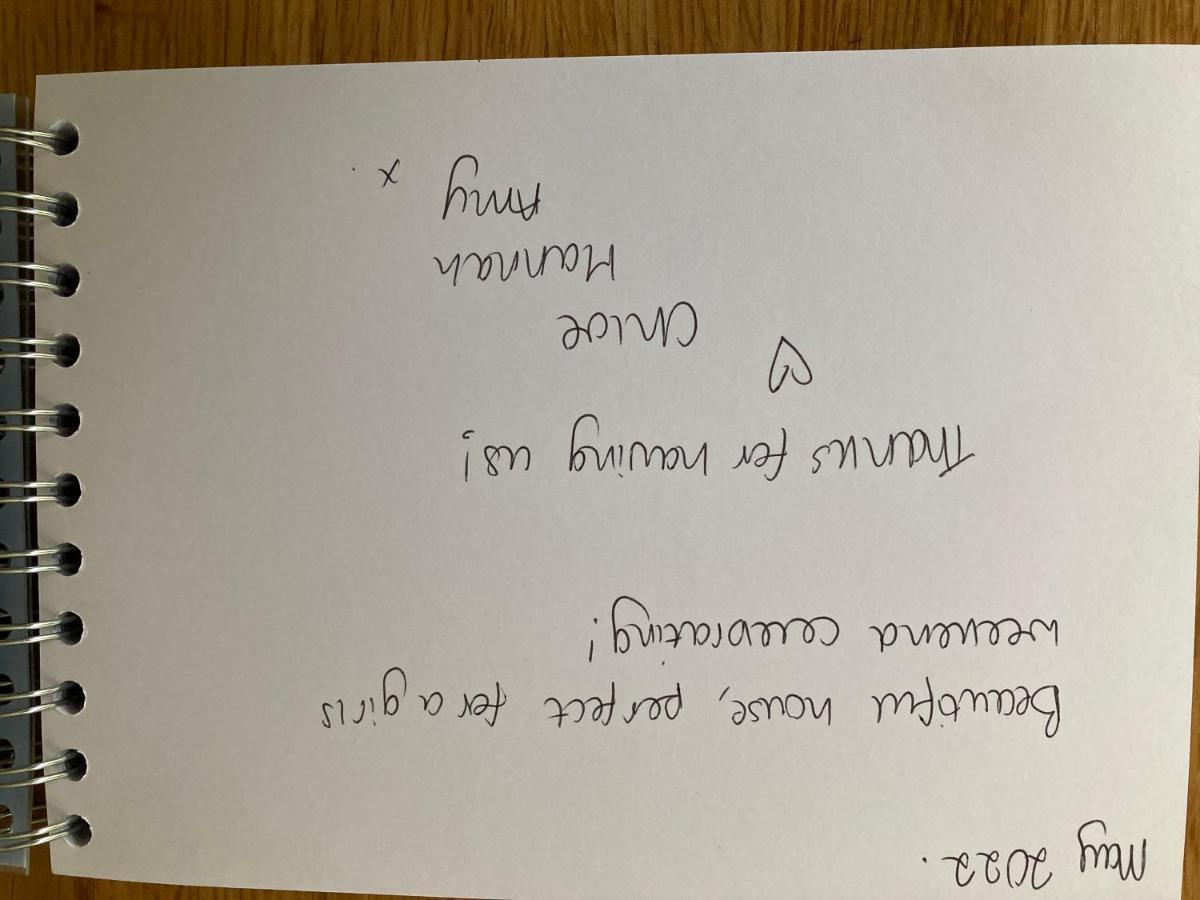 May 2022.
Beautiful house, perfect for a girls
weekend celebrating!
Thanks for having us!
♡ Chloe
Hannah
Amy x.